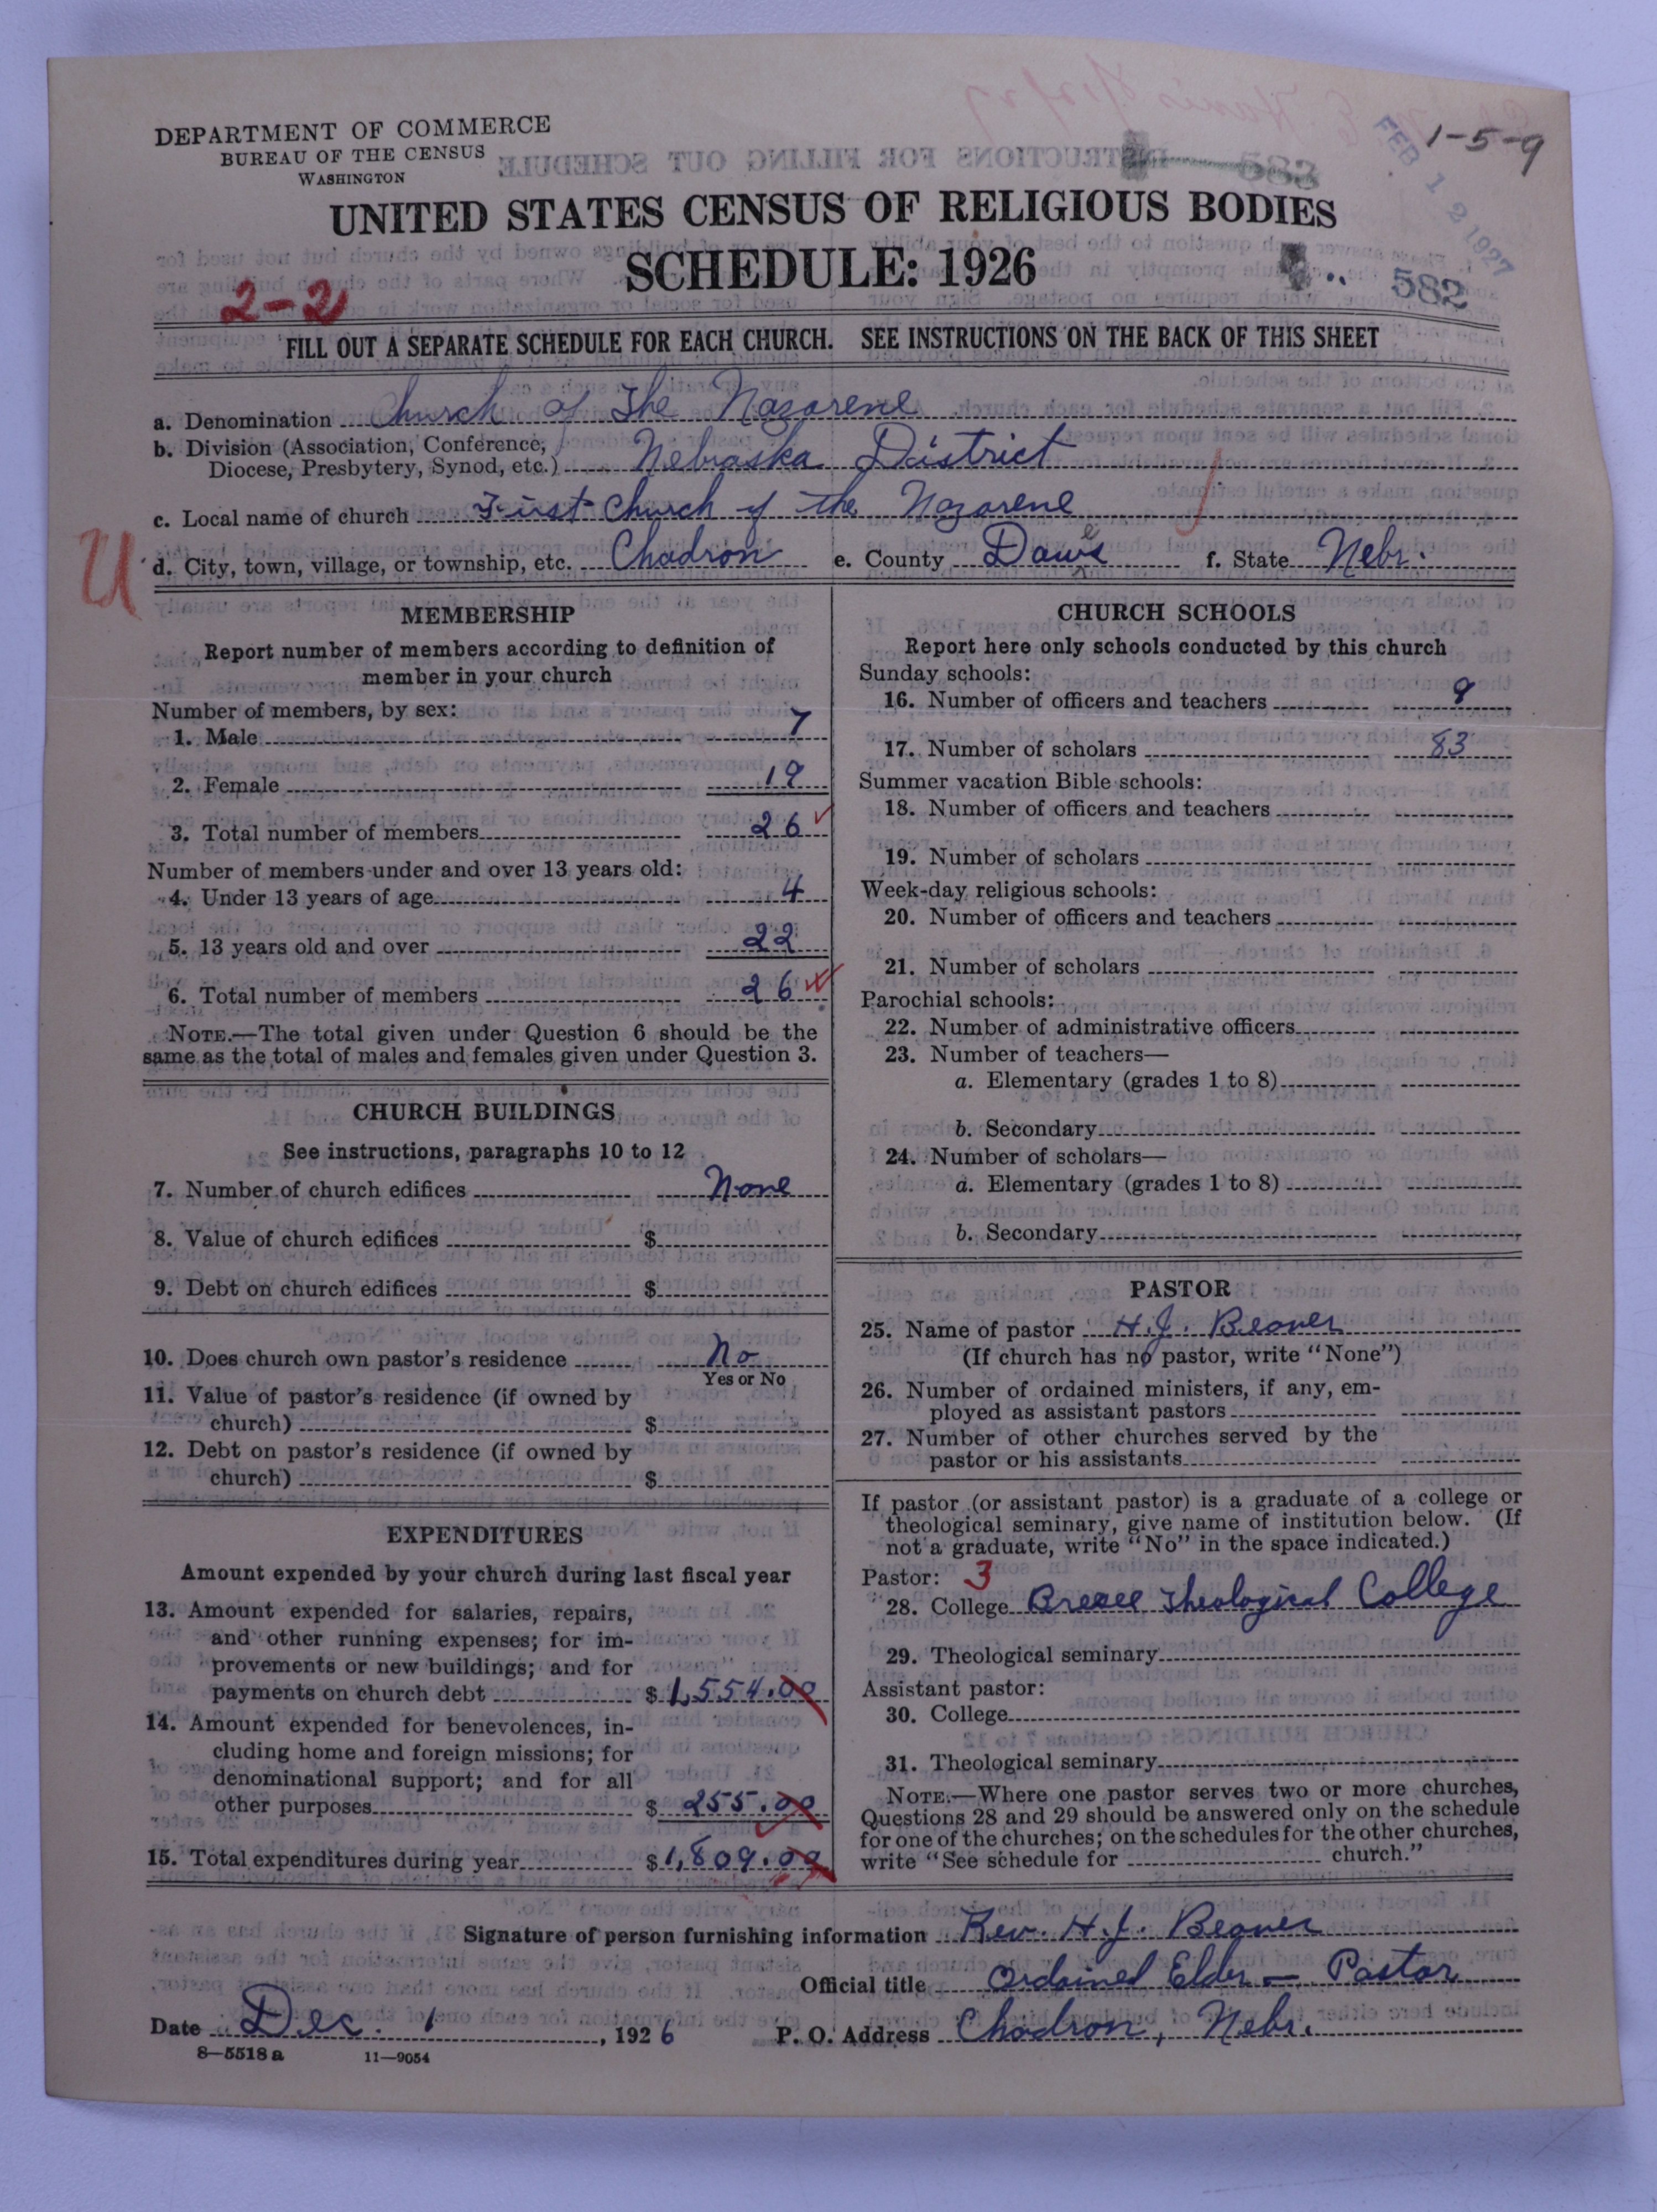 DEPARTMENT OF COMMERCE
BUREAU OF THE CENSUS
WASHINGTON
1-5-9
FEB 12 1927
583
UNITED STATES CENSUS OF RELIGIOUS BODIES
SCHEDULE: 1926
582
2-2
FILL OUT A SEPARATE SCHEDULE FOR EACH CHURCH. SEE INSTRUCTIONS ON THE BACK OF THIS SHEET
a. Denomination Church of The Nazarene
b. Division (Association, Conference,
Diocese, Presbytery, Synod, etc.) Nebraska District
c. Local name of church First Church of the Nazarene
U
d. City, town, village, or township, etc. Chadron e. County Dawes f. State Nebr.
MEMBERSHIP
Report number of members according to definition of
member in your church
Number of members, by sex:
1. Male 7
2. Female 19
3. Total number of members 26
Number of members under and over 13 years old:
4. Under 13 years of age 4
5. 13 years old and over 22
6. Total number of members 26
NOTE.—The total given under Question 6 should be the
same as the total of males and females given under Question 3.
CHURCH BUILDINGS
See instructions, paragraphs 10 to 12
7. Number of church edifices None
8. Value of church edifices $
9. Debt on church edifices $
10. Does church own pastor's residence No
Yes or No
11. Value of pastor's residence (if owned by
church) $
12. Debt on pastor's residence (if owned by
church) $
EXPENDITURES
Amount expended by your church during last fiscal year
13. Amount expended for salaries, repairs,
and other running expenses; for im-
provements or new buildings; and for
payments on church debt $ 1,554.00
14. Amount expended for benevolences, in-
cluding home and foreign missions; for
denominational support; and for all
other purposes $ 255.00
15. Total expenditures during year $ 1,809.00
CHURCH SCHOOLS
Report here only schools conducted by this church
Sunday schools:
16. Number of officers and teachers 9
17. Number of scholars 83
Summer vacation Bible schools:
18. Number of officers and teachers
19. Number of scholars
Week-day religious schools:
20. Number of officers and teachers
21. Number of scholars
Parochial schools:
22. Number of administrative officers
23. Number of teachers—
a. Elementary (grades 1 to 8)
b. Secondary
24. Number of scholars—
a. Elementary (grades 1 to 8)
b. Secondary
PASTOR
25. Name of pastor H.J. Beaver
(If church has no pastor, write "None")
26. Number of ordained ministers, if any, em-
ployed as assistant pastors
27. Number of other churches served by the
pastor or his assistants
If pastor (or assistant pastor) is a graduate of a college or
theological seminary, give name of institution below. (If
not a graduate, write "No" in the space indicated.)
Pastor: 3
28. College Bresee Theological College
29. Theological seminary
Assistant pastor:
30. College
31. Theological seminary
NOTE.—Where one pastor serves two or more churches,
Questions 28 and 29 should be answered only on the schedule
for one of the churches; on the schedules for the other churches,
write "See schedule for church."
Signature of person furnishing information Rev. H.J. Beaver
Official title Ordained Elder — Pastor
Date Dec. 1, 1926 P. O. Address Chadron, Nebr.
8—5518 a 11—9054